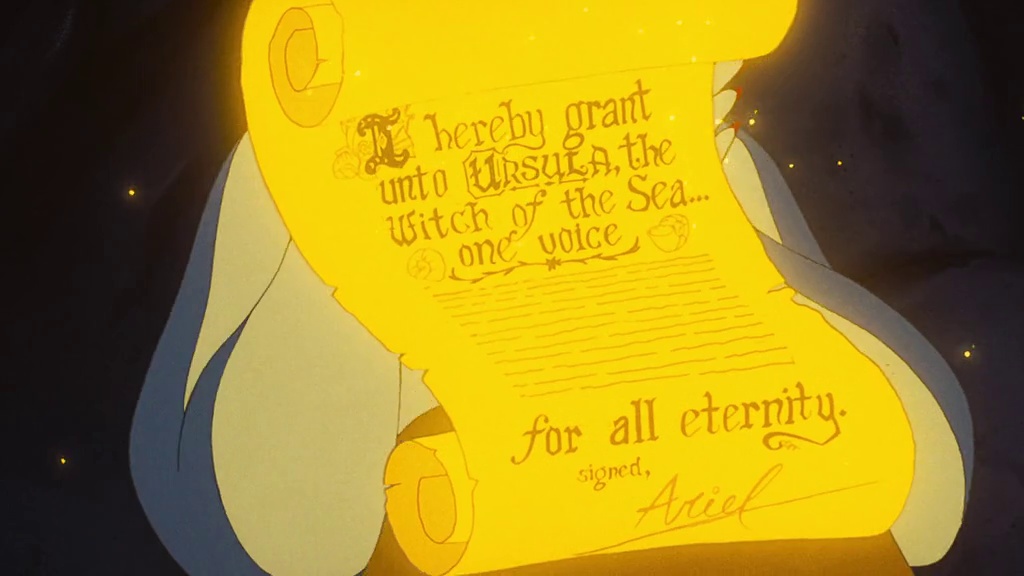 I hereby grant
unto Ursula, the
Witch of the Sea...
one voice
for all eternity.
signed,
Ariel